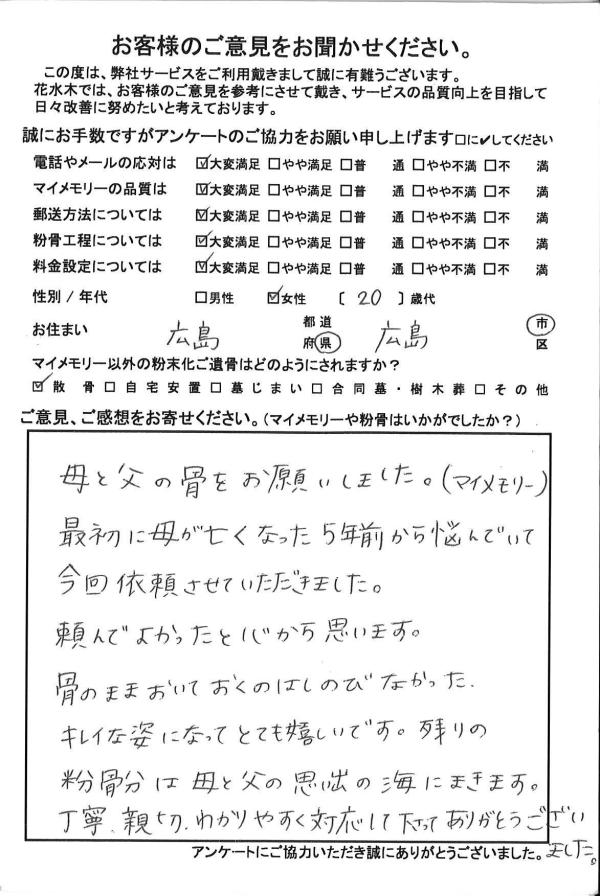 お客様のご意見をお聞かせください。
この度は、弊社サービスをご利用戴きまして誠に有難うございます。
花水木では、お客様のご意見を参考にさせて戴き、サービスの品質向上を目指して
日々改善に努めたいと考えております。
誠にお手数ですがアンケートのご協力をお願い申し上げます□に✔してください
電話やメールの応対は ☑大変満足 □やや満足 □普 通 □やや不満 □不 満
マイメモリーの品質は ☑大変満足 □やや満足 □普 通 □やや不満 □不 満
郵送方法については ☑大変満足 □やや満足 □普 通 □やや不満 □不 満
粉骨工程については ☑大変満足 □やや満足 □普 通 □やや不満 □不 満
料金設定については ☑大変満足 □やや満足 □普 通 □やや不満 □不 満
性別 / 年代 □男性 ☑女性 〔 20 〕歳代
お住まい 広島 都道府県 広島 市区
マイメモリー以外の粉末化ご遺骨はどのようにされますか?
☑散骨 □自宅安置 □墓じまい □合同墓・樹木葬 □その他
ご意見、ご感想をお寄せください。(マイメモリーや粉骨はいかがでしたか?)
母と父の骨をお願いしました。(マイメモリー)
最初に母が亡くなった5年前から悩んでいて
今回依頼させていただきました。
頼んでよかったと心から思います。
骨のままおいておくのはしのびなかった.
キレイな姿になってとても嬉しいです。残りの
粉骨分は母と父の思い出の海にまきます。
丁寧、親切、わかりやすく対応して下さってありがとうござい
ました。
アンケートにご協力いただき誠にありがとうございました。